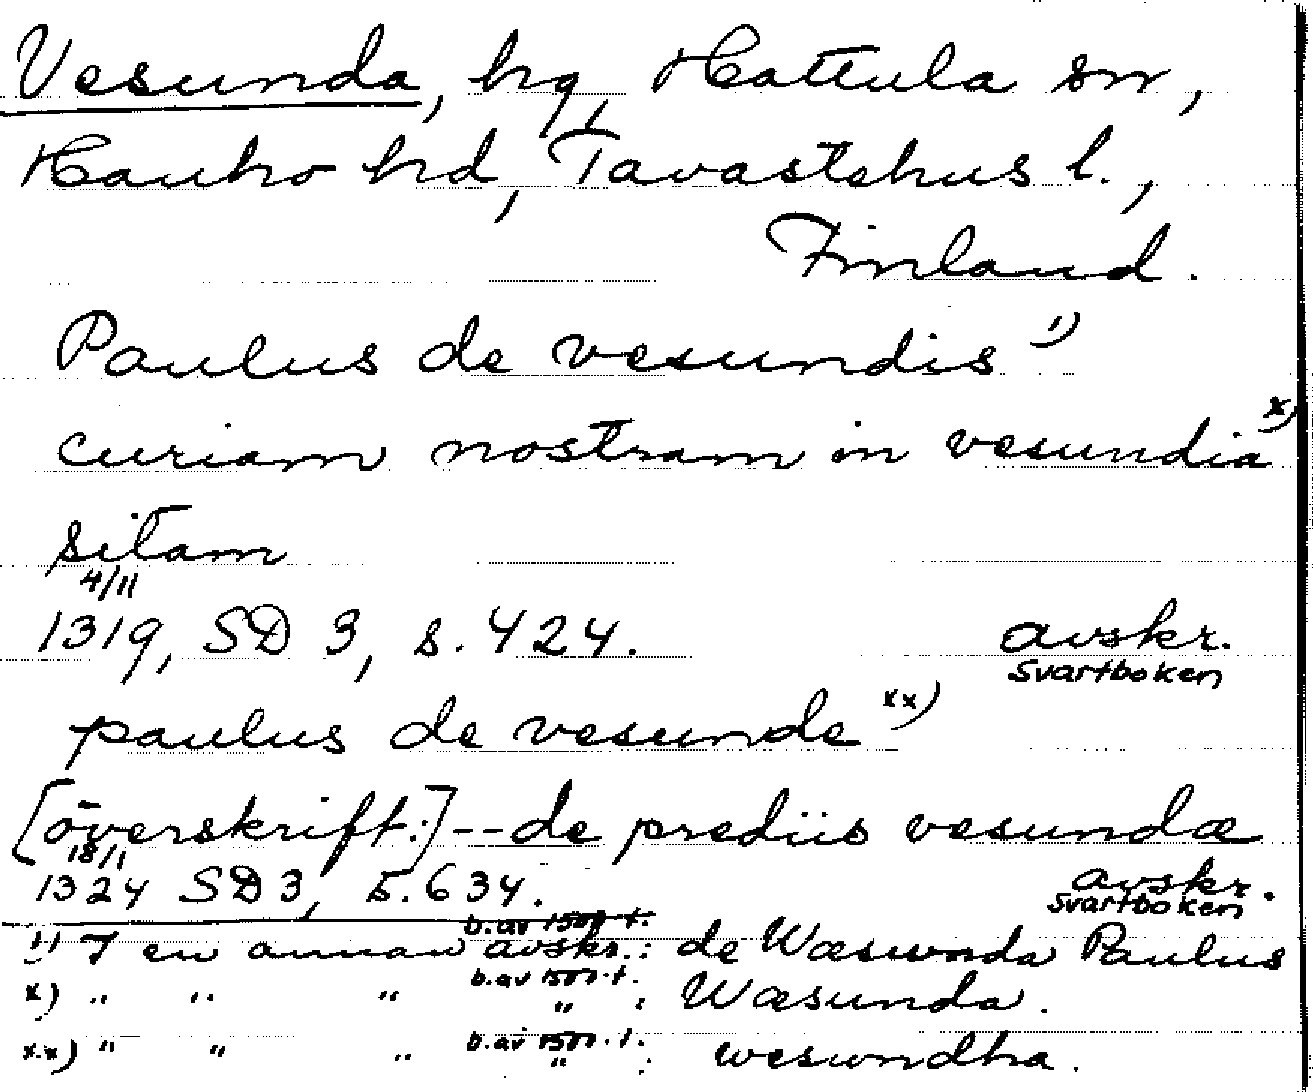 Vesunda, hg, Hattula sn,
Hauho hd, Tavastehus l.,
Finland.
Paulus de vesundis 1)
curiam nostram in vesundia x)
sitam
4/11
1319, SD 3, s. 424. avskr.
Svartboken
paulus de vesunde xx)
[överskift:] -- de prediis vesundæ
18/1
1324 SD 3, s. 634. avskr.
Svartboken
b. av 1500-t.
1) I en annan avskr.: de Wæsunda Paulus
b. av 1500-t.
x) " " " " : Wæsunda.
b. av 1500-t.
xx) " " " " : wesundha.